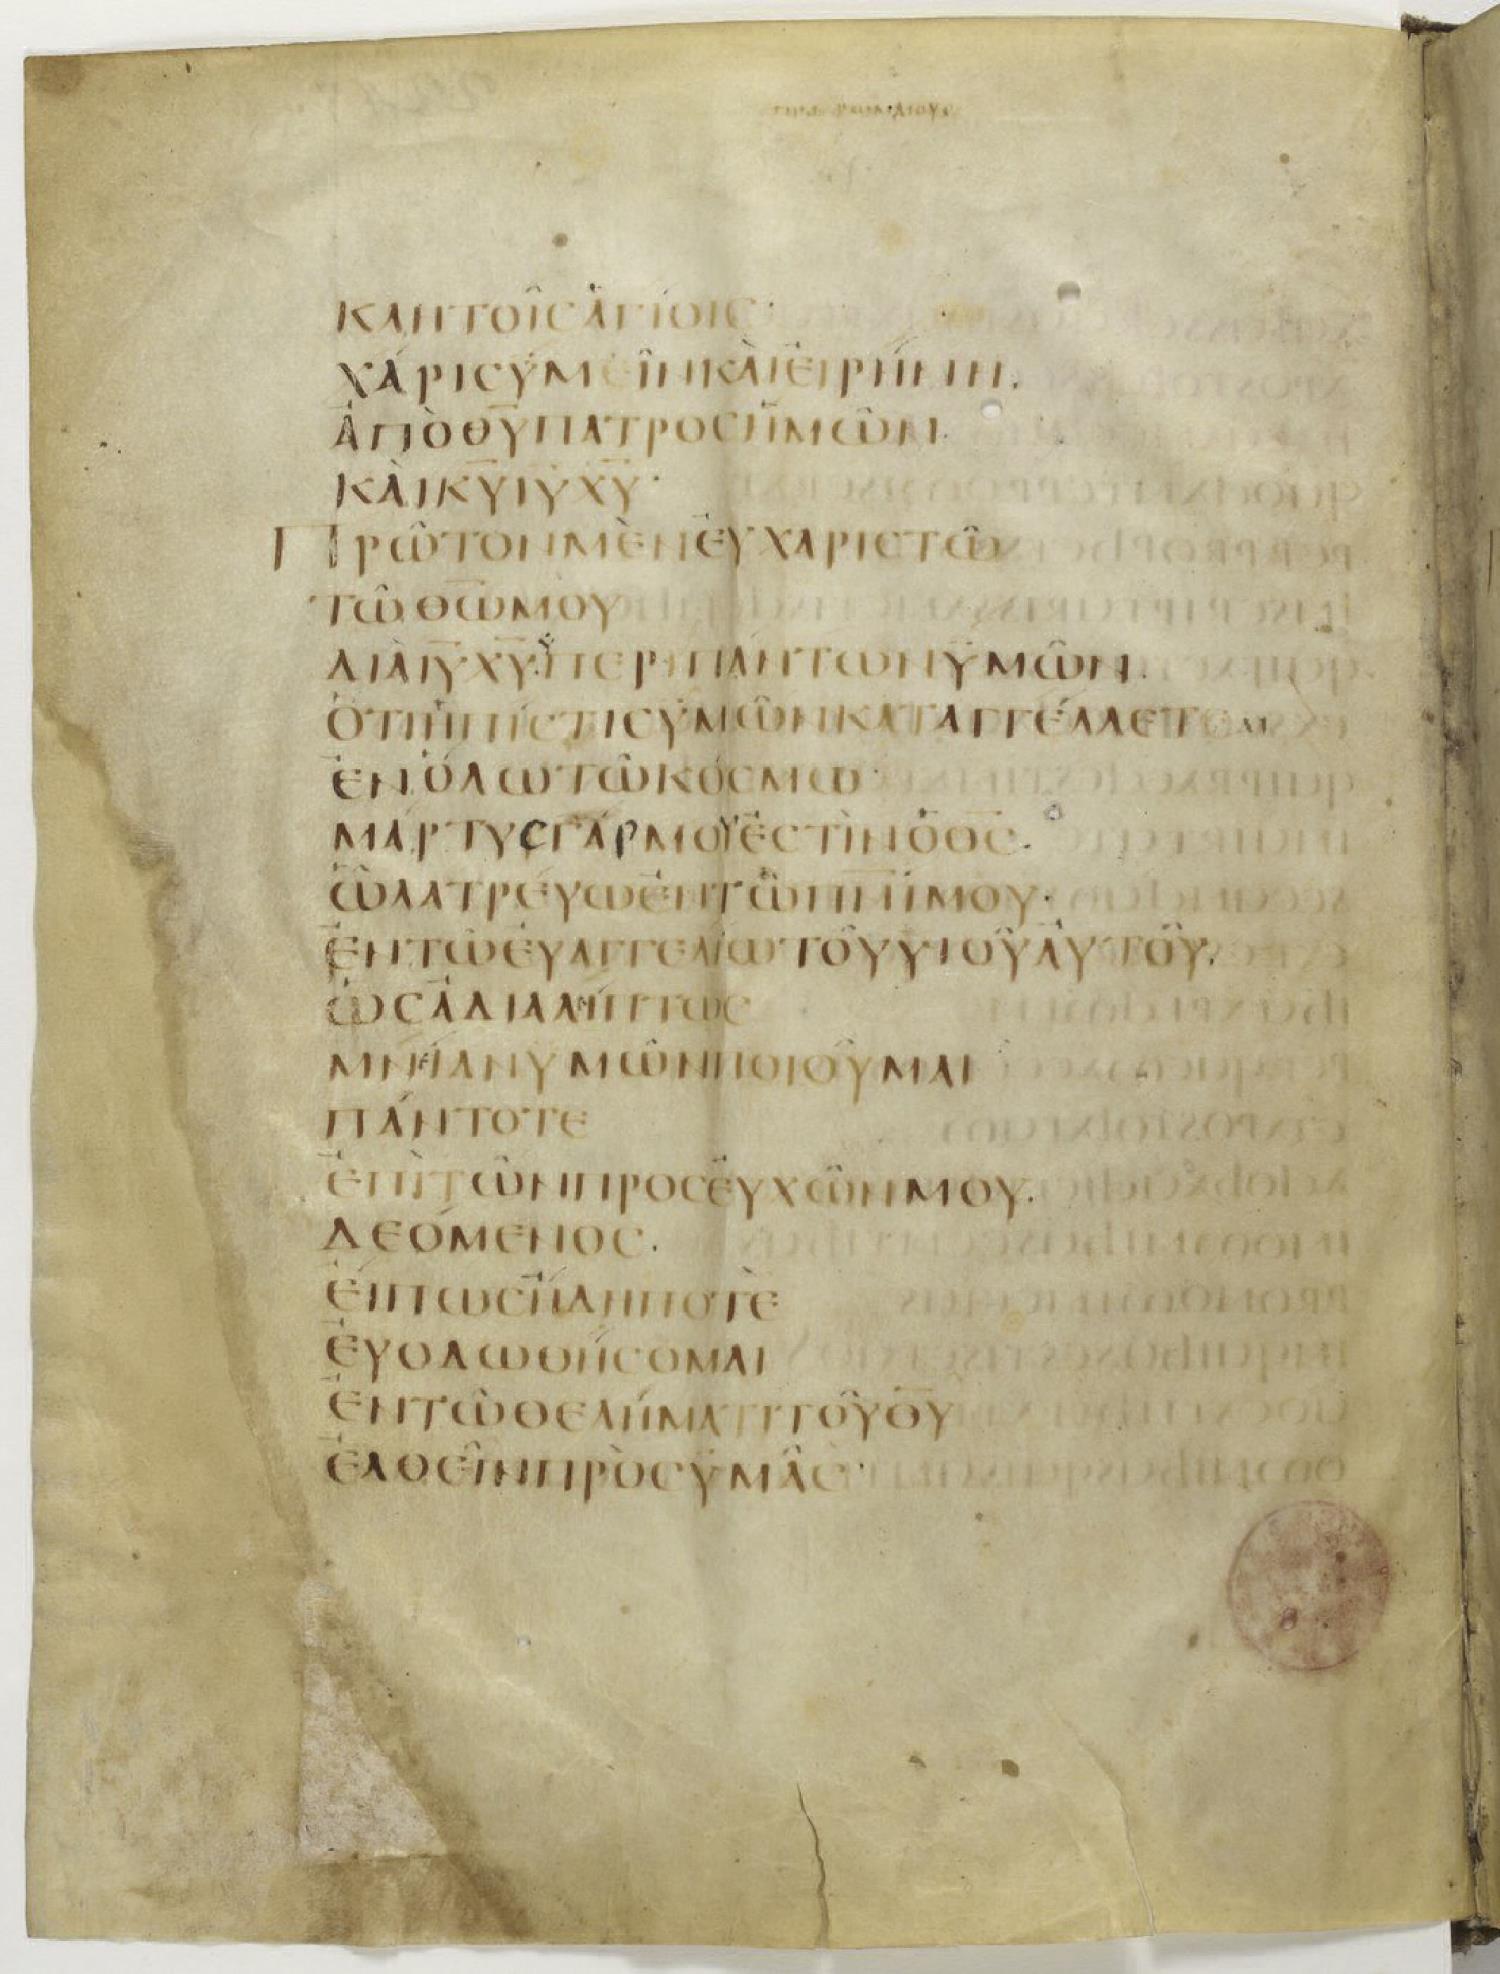 ΠΡΟΣ ΡΩΜΑΙΟΥΣ
ΚΛΗΤΟῖϹἉΓΊΟΙϹ·
ΧΆΡΙϹΫΜΕῖΝΚΑῚΕἸΡΉΝΗ.
ἈΠῸΘ̅Υ̅ΠΑΤΡΟϹἩΜΩ͂Ν.
ΚΑῚΚ̅Υ̅Ι̅Υ̅Χ̅Υ̅·
ΠΡΩ͂ΤΟΝΜῈΝΕΥ̓ΧΑΡΙϹΤΩ͂
ΤΩ͂Θ̅Ω̅ΜΟΥ
ΔΙᾺΙ̅Υ̅Χ̅Υ̅ΫΠΕΡΙΠΑΝΤΩΝΫΜΩ͂Ν.
ὍΤΙἩΠΊϹΤΙϹΫΜΩ͂ΝΚΑΤΑΓΓΈΛΛΕΤΕΑΙ
ἘΝὍΛΩΤΩ͂ΚΌϹΜΩ·
ΜΆΡΤΥϹΓΆΡΜΟΥἘϹΤῚΝὉΘ̅Ϲ̅.
ὯΛΑΤΡΕΎΩἘΝΤΩ͂Π̅Ν̅Ι̅ΜΟΥ·
ἘΝΤΩ͂ΕΥ̓ΑΓΓΕΛΊΩΤΟΥ͂ΥΙΟΥ͂ΑΥ̓ΤΟΥ͂.
ὩϹἈΔΙΑΛΉΠΤΩϹ
ΜΝΕΊΑΝΫΜΩ͂ΝΠΟΙΟΥ͂ΜΑΙ
ΠΆΝΤΟΤΕ
ἘΠῚΤΩ͂ΝΠΡΟϹΕΥΧΩ͂ΝΜΟΥ.
ΔΕΌΜΕΝΟϹ.
ἘΙΠΩϹἩΔΗΠΟΤῈ
ἘΥΟΔΩΘΉϹΟΜΑΙ
ἘΝΤΩ͂ΘΕΛΉΜΑΤΙΤΟΥ͂Θ̅Υ̅
ἘΛΘΕῖΝΠΡῸϹΫΜΑ͂Ϲ·